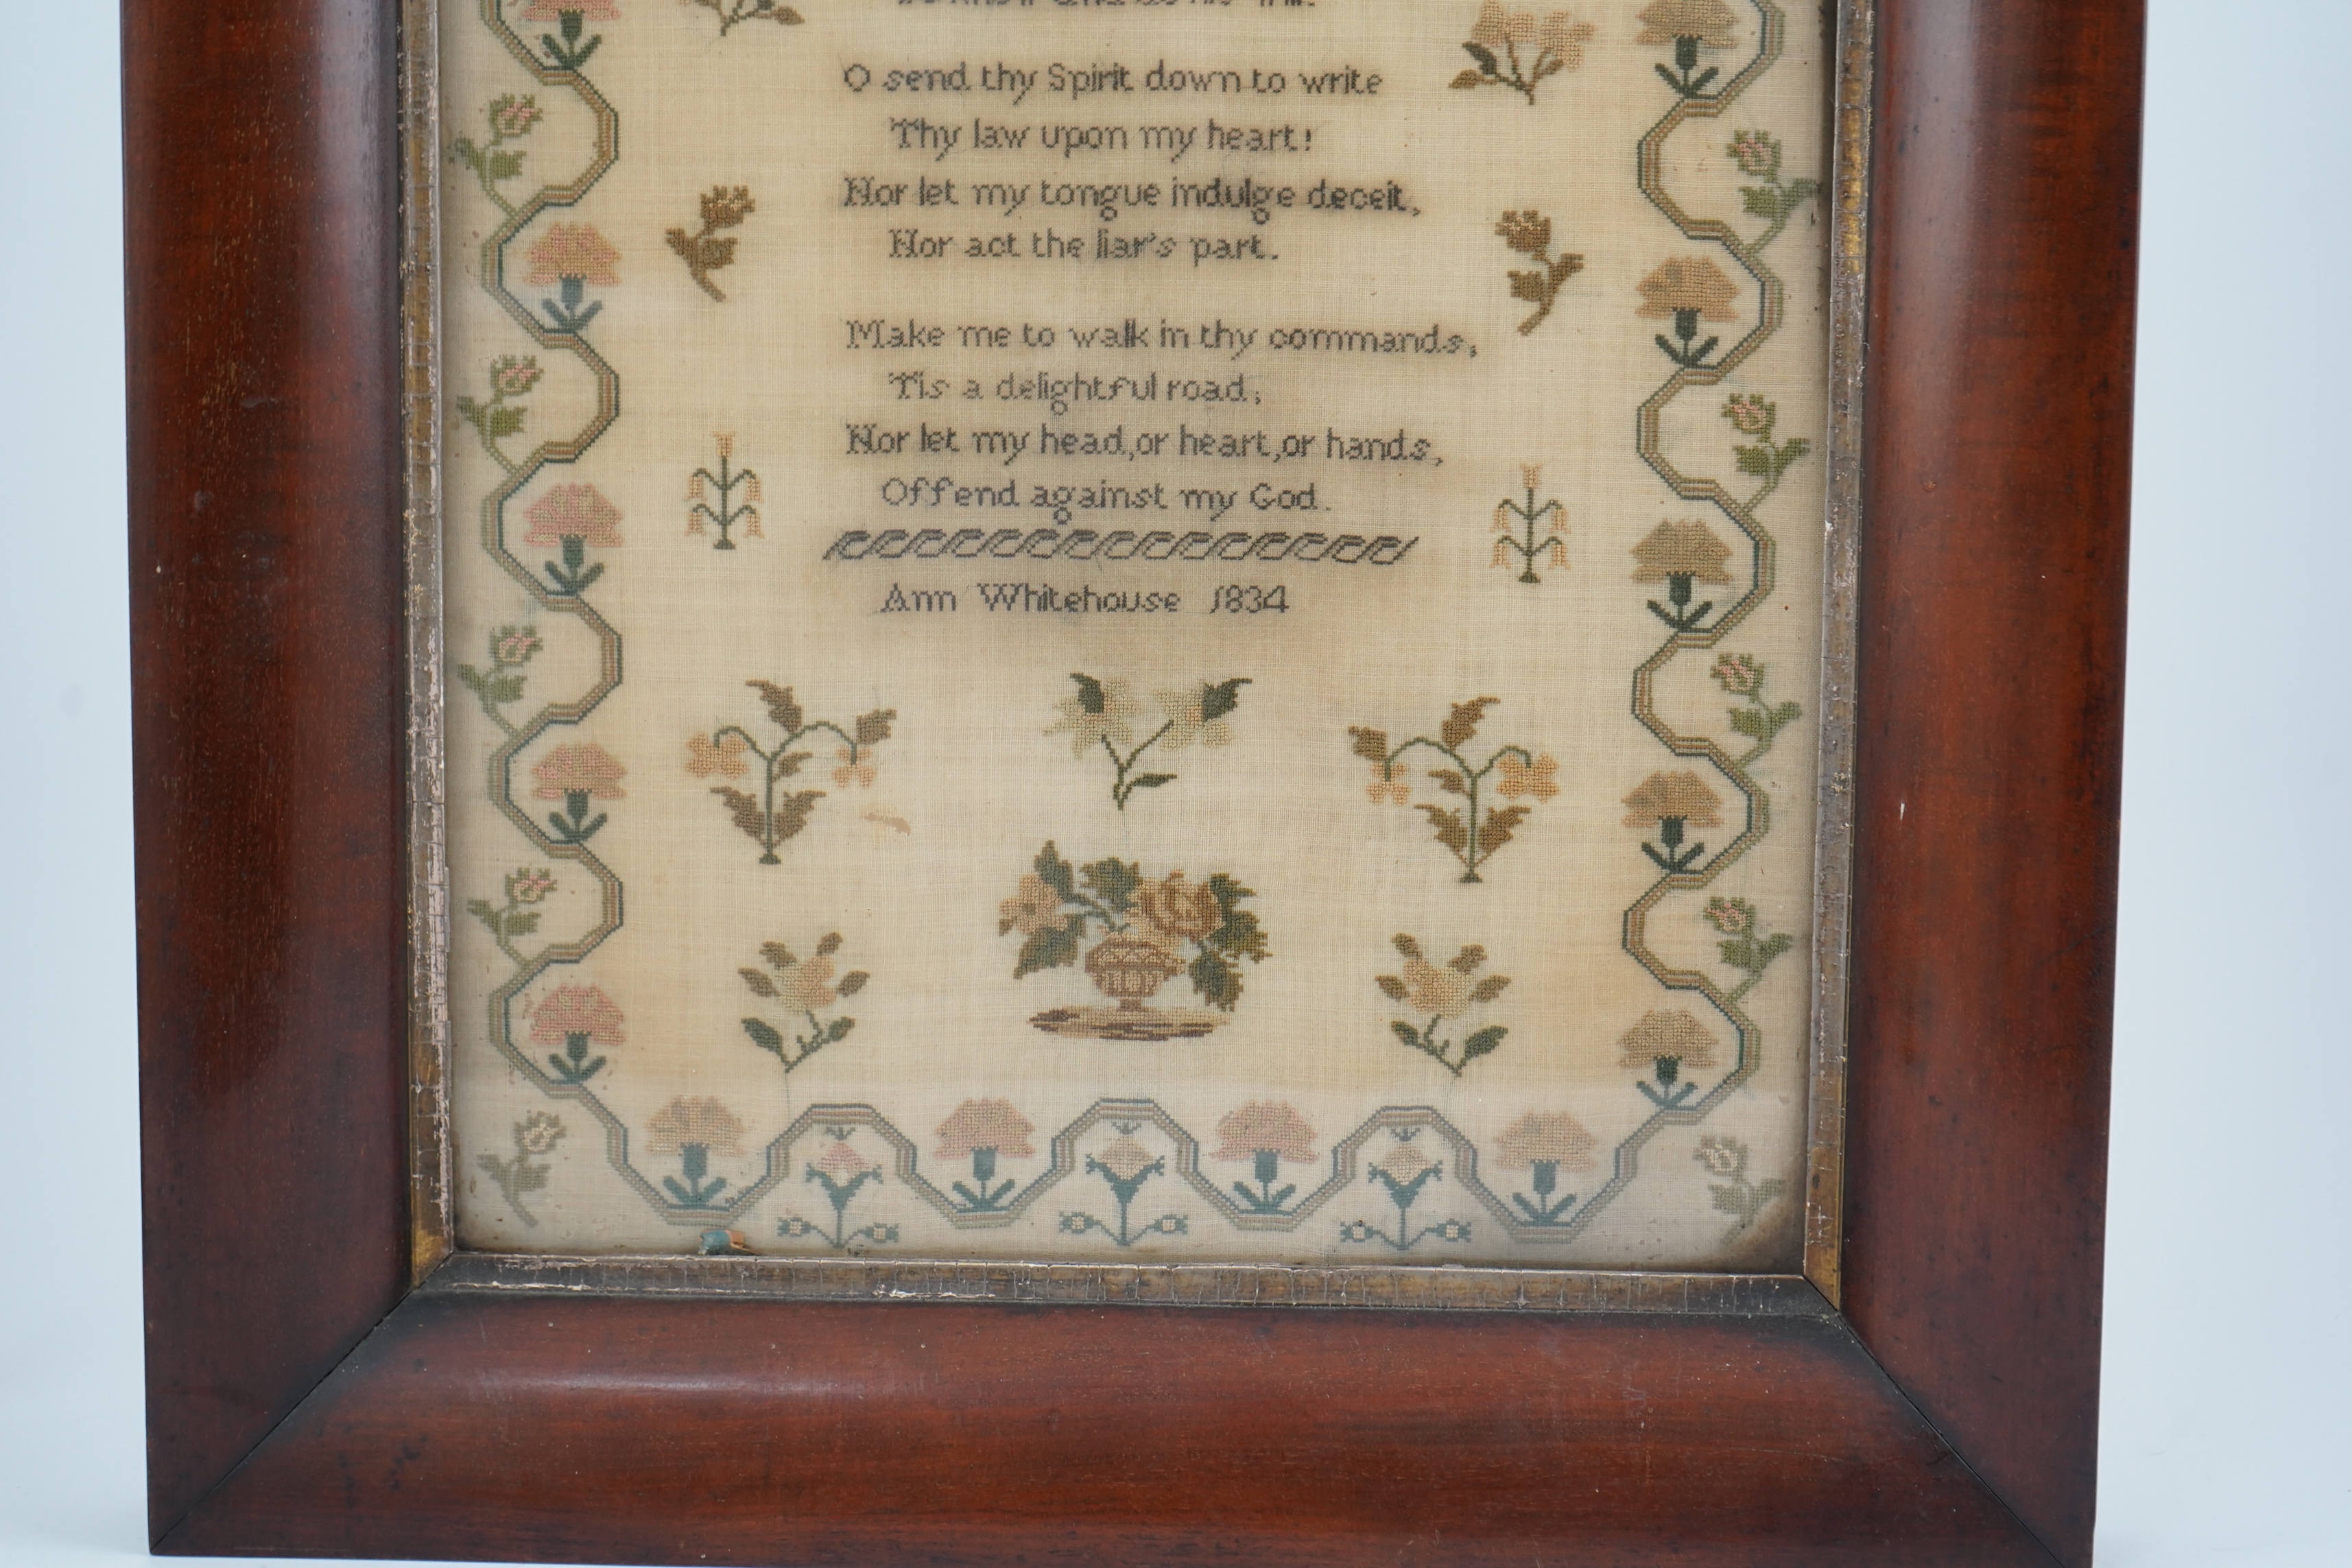 O send thy Spirit down to write
Thy law upon my heart!
Nor let my tongue indulge deceit,
Nor act the liar's part.
Make me to walk in thy commands,
Tis a delightful road;
Nor let my head, or heart, or hands,
Offend against my God.
Ann Whitehouse 1834